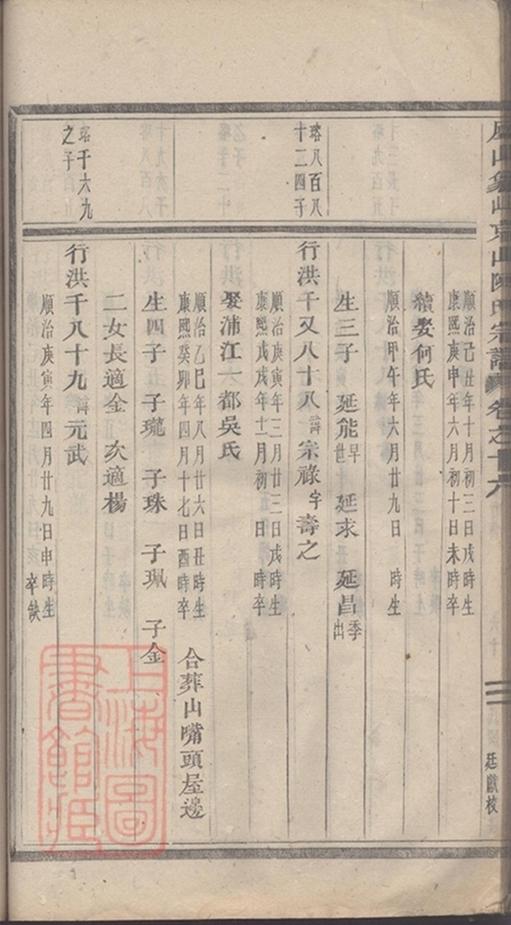 山陳氏宗譜 卷之十六
廷獻校
順治己丑年十月初三日戌時生
康熙庚申年六月初十日未時卒
續娶何氏
順治甲午年六月廿九日 時生
生三子 延能早世 延求 延昌季出
珞八百八十二四子
行洪千又八十八諱宗祿字壽之
順治庚寅年三月廿三日戌時生
康熙戊戌年十一月初一日 時卒
娶浦江一都吳氏
順治乙巳年八月廿六日丑時生
康熙癸卯年四月十七日酉時卒
合葬山嘴頭屋邊
生四子 子瓏 子珠 子珮 子金
二女長適金 次適楊
珞千六九之子
行洪千八十九諱元武
順治庚寅年四月廿九日申時生
卒缺
上海圖書館藏